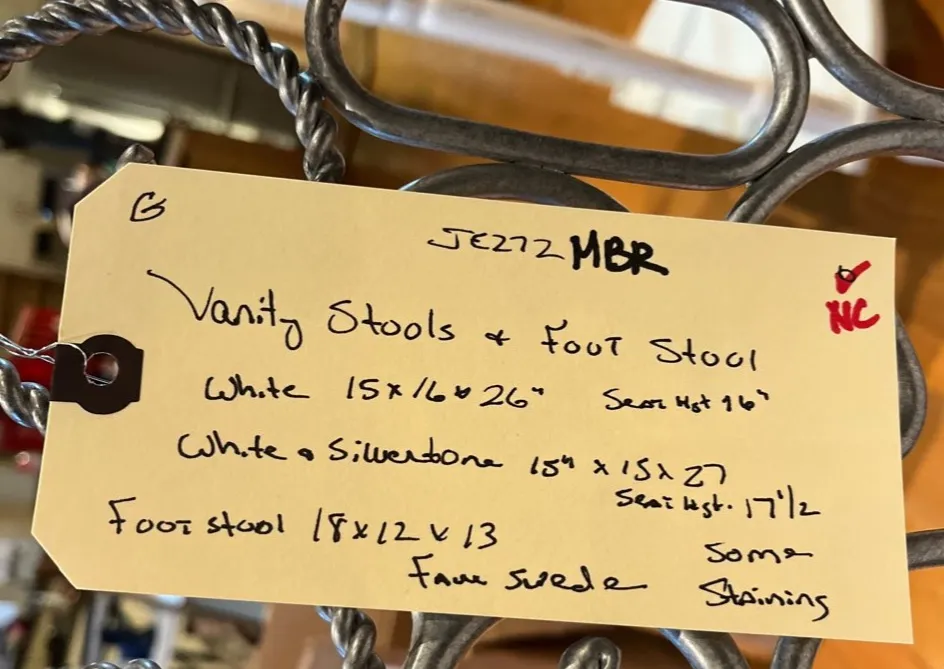 G
JE272 MBR
NC
Vanity Stools & Foot Stool
White 15 x 16 x 26" Seat Hgt 16"
White & Silvertone 15" x 15 x 27
Seat Hgt. 17 1/2
Foot stool 18 x 12 x 13
Some
Faux Suede Staining